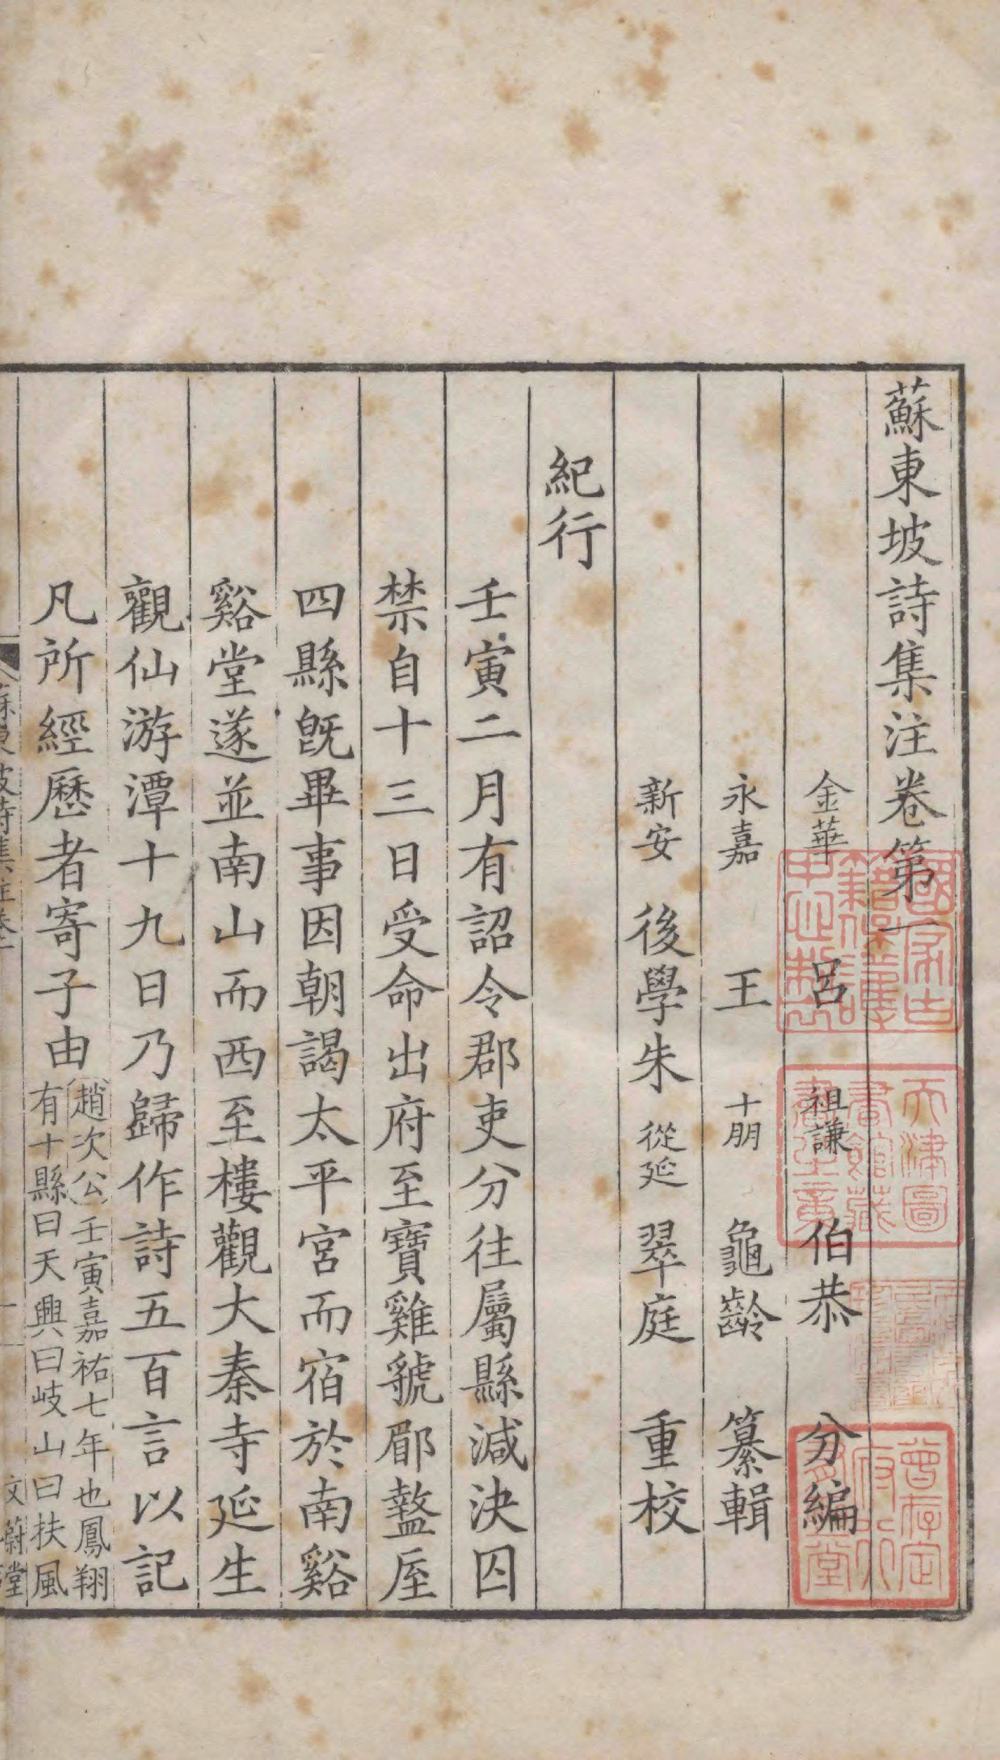 蘇東坡詩集注卷第一
金華 呂 祖謙 伯恭 分編
永嘉 王 十朋 龜齡 纂輯
新安 後學朱 從延 翠庭 重校
紀行
壬寅二月有詔令郡吏分往屬縣減決囚
禁自十三日受命出府至寶雞虢郿盩厔
四縣旣畢事因朝謁太平宮而宿於南谿
谿堂遂並南山而西至樓觀大秦寺延生
觀仙游潭十九日乃歸作詩五百言以記
凡所經歷者寄子由
趙次公壬寅嘉祐七年也鳳翔
有十縣曰天興曰岐山曰扶風
蘇東坡詩集註卷一
一
文蔚堂
國家古籍保護中心製
天津圖書館藏書之章